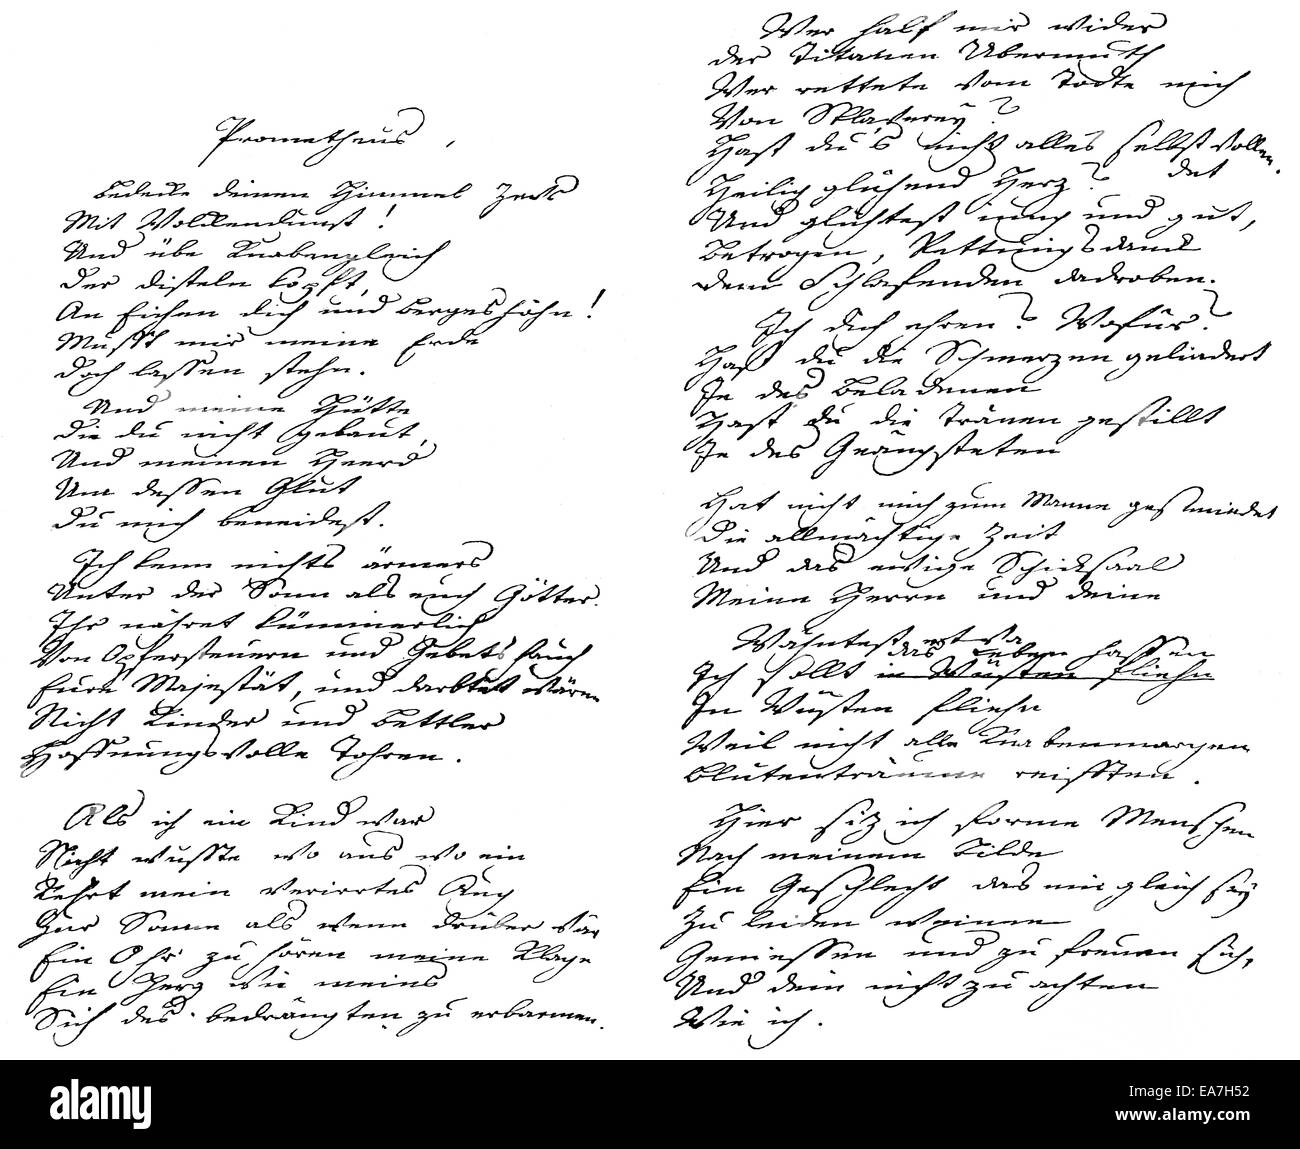 Prometheus,
Bedecke deinen Himmel Zeus
Mit Wolckendunst!
Und übe Knabengleich
Der disteln köpft,
An Eichen dich und Bergeshöhn!
Musst mir meine Erde
Doch lassen stehn.
Und meine Hütte
Die du nicht gebaut,
Und meinen Heerd
Um dessen Glut
Du mich beneidest.
Ich kenn nichts ärmers
Unter der Sonn als euch Götter.
Ihr nähret kümmerlich
Von Opfersteuern und Gebetshauch
Eure Majestät, und darbtet wären
Nicht Kinder und Bettler
Hoffnungsvolle Tohren.
Als ich ein Kind war
Nicht wusste wo aus wo ein
Kehrt mein verirrtes Aug
Zur Sonne als wenn drüber wär
Ein Ohr zu hören meine Klage
Ein Herz wie meins
Sich des bedrängten zu erbarmen.
Wer half mir wider
der Titanen Übermuth
Wer rettete vom Todte mich
Von Sklaverey?
Hast du's nicht alles selbst vollen
det
Heilig glühend Herz?
Und glühtest iung und gut,
Betrogen, Rettungsdank
Dem Schlafenden dadroben.
Ich dich ehren? Wofür?
Hast du die Schmerzen gelindert
Je des Beladenen
Hast du die Tränen gestillt
Je des Geängsteten
Hat nicht mich zum Manne geschmiedet
Die allmächtige Zeit
Und das ewige Schicksaal
Meine Herrn und deine
Wähntest etwa
das Leben hassen
Ich sollt in Wüsten fliehn
In Wüsten fliehn
Weil nicht alle Knabenmorgen
Blütenträume reifften.
Hier siz ich forme Menschen
Nach meinem Bilde
Ein Geschlecht das mir gleich sey
Zu leiden weinen
Geniessen und zu freuen sich,
Und dein nicht zu achten
Wie ich.
alamy stock photo
EA7H52
www.alamy.com